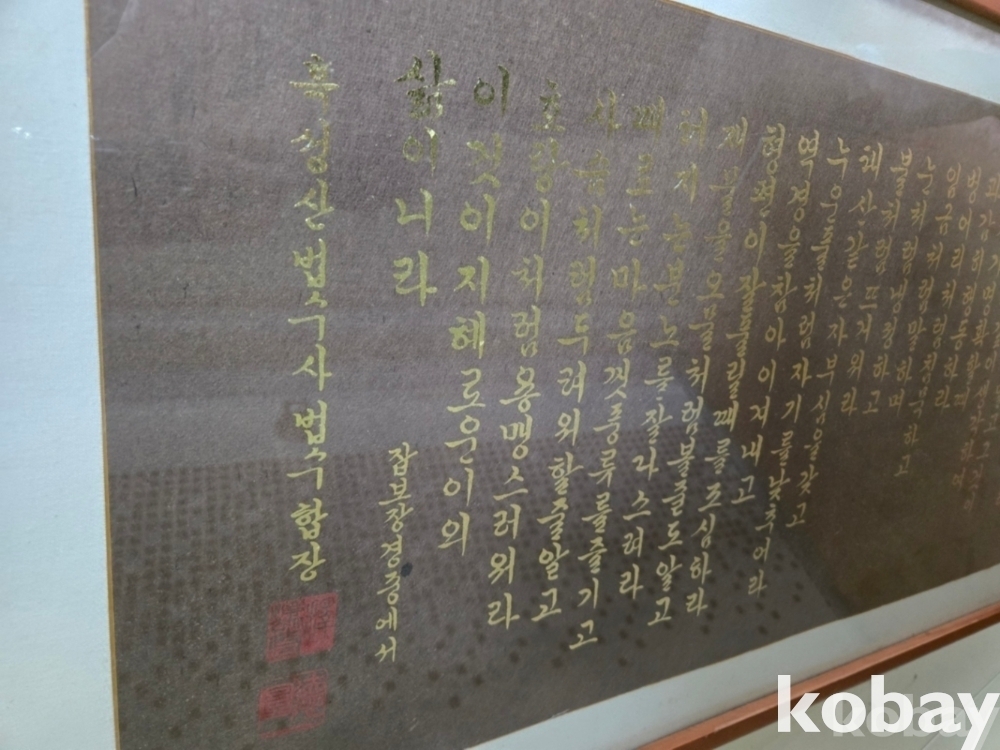 벙어리처럼침묵하고
임금처럼말하며
눈처럼냉정하고
불처럼뜨거워라
태산같은자부심을갖고
누은풀처럼자기를낮추어라
역경을참아이겨내고
형편이잘풀릴때를조심하라
재물을오물처럼볼줄도알고
터지는분노를잘다스려라
때로는마음껏풍류를즐기고
사슴처럼두려워할줄알고
호랑이처럼용맹스러워라
이것이지혜로운이의
삶이니라
잡보장경중에서
흑성산법수사법수합장
kobay